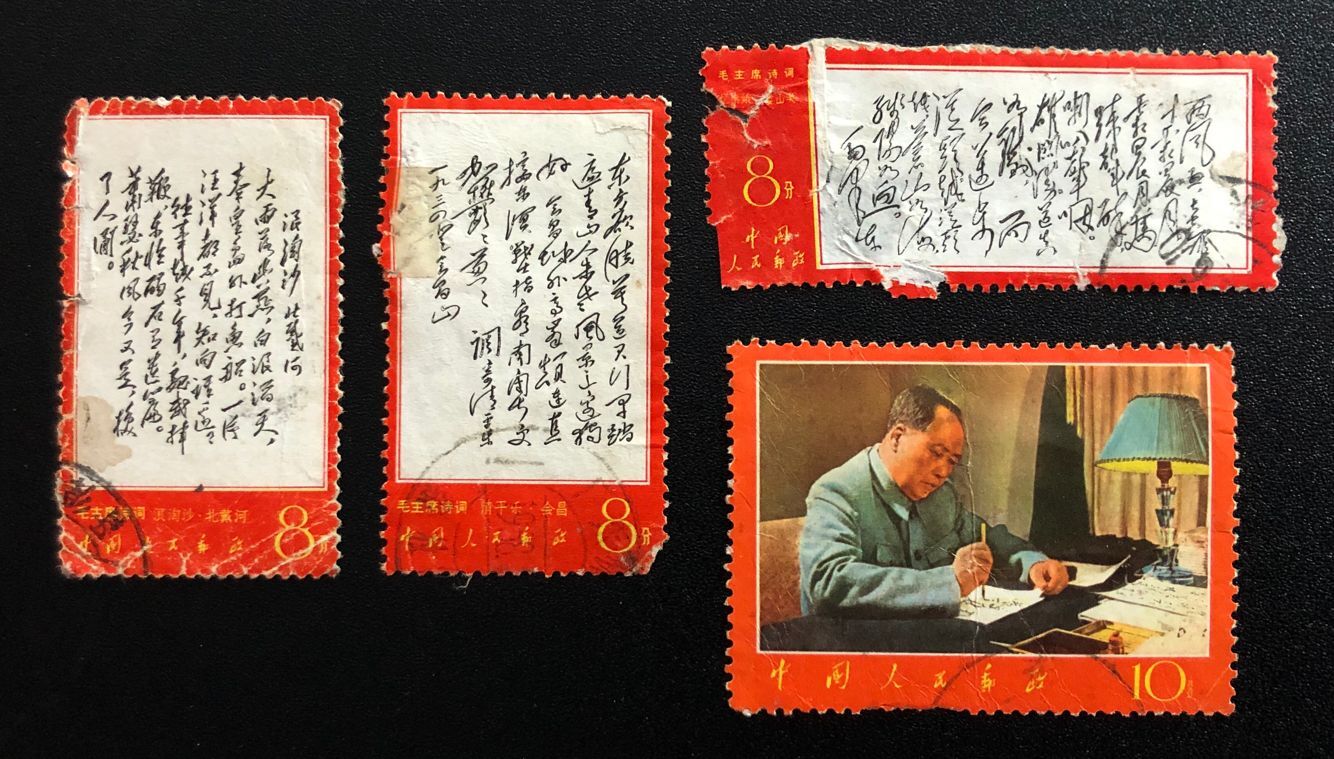 浪淘沙 北戴河
大雨落幽燕，白浪滔天，
秦皇岛外打鱼船。一片
汪洋都不见，知向谁边？
往事越千年，魏武挥
鞭，东临碣石有遗篇。
萧瑟秋风今又是，换
了人间。
毛主席诗词 浪淘沙·北戴河
中国人民郵政 8分
东方欲晓莫道君行早踏
遍青山人未老风景这边独
好 会昌城外高峯颠连直
接东溟战士指看南粤更
加郁々葱々 调寄清平乐
一九三四 登会昌山
毛主席诗词 清平乐·会昌
中国人民郵政 8分
毛主席诗词
8分
中国
人民郵政
西风烈 长空雁
叫霜晨月。
霜晨月，马
蹄声碎，
喇叭声咽。
雄关漫道真
如铁，而
今迈步
从头越。从头
越，苍山如海，
残阳如血。
毛泽东
中国人民郵政 10分